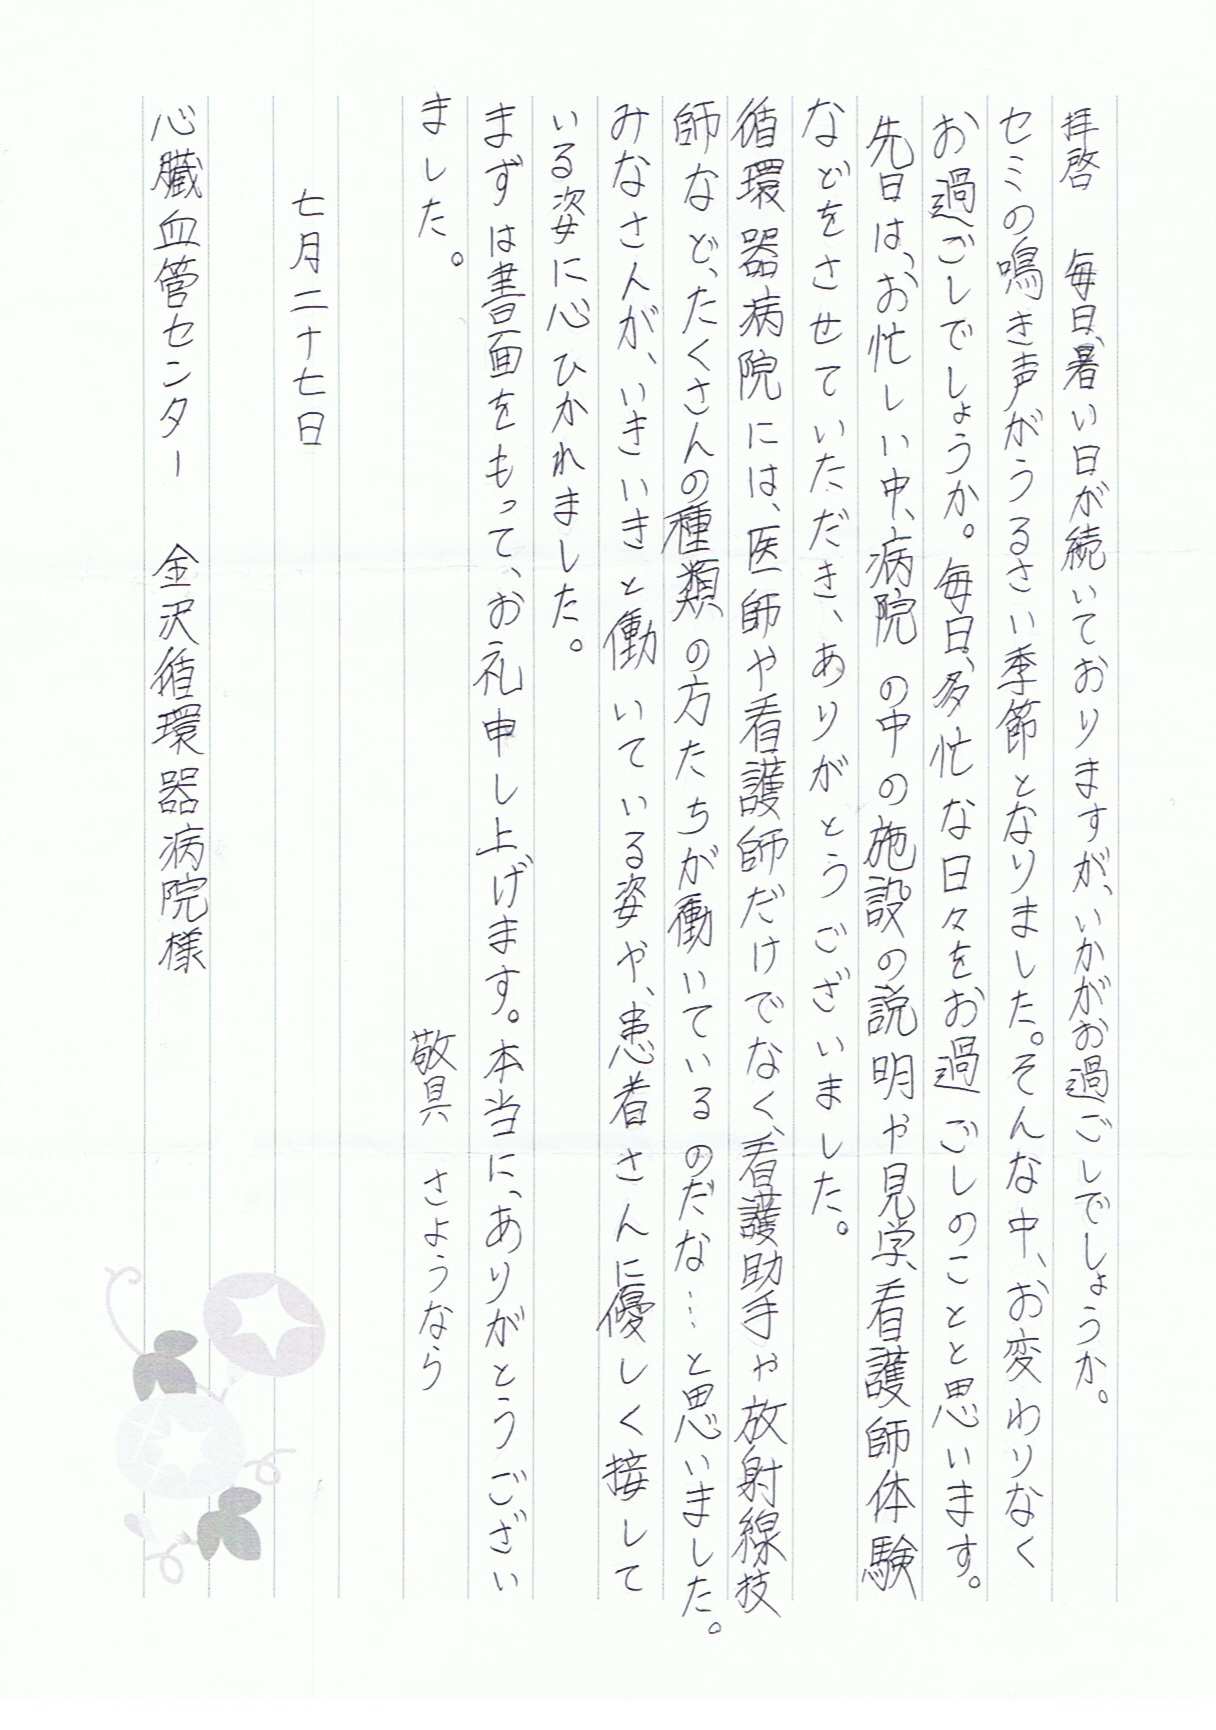 拝啓　毎日、暑い日が続いておりますが、いかがお過ごしでしょうか。
セミの鳴き声がうるさい季節となりました。そんな中、お変わりなく
お過ごしでしょうか。毎日、多忙な日々をお過ごしのことと思います。
先日は、お忙しい中、病院の中の施設の説明や見学、看護師体験
などをさせていただき、ありがとうございました。
循環器病院には、医師や看護師だけでなく、看護助手や放射線技
師など、たくさんの種類の方たちが働いているのだな…と思いました。
みなさんが、いきいきと働いている姿や、患者さんに優しく接して
いる姿に心ひかれました。
まずは書面をもって、お礼申し上げます。本当に、ありがとうござい
ました。
敬具　さようなら
七月二十七日
心臓血管センター　金沢循環器病院様